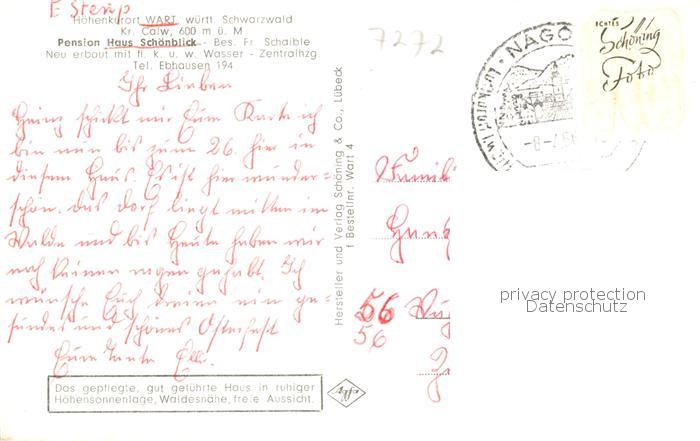 E Stemp
Höhenkurort WART, württ. Schwarzwald
Kr. Calw, 600 m ü. M
Pension Haus Schönblick - Bes. Fr. Schaible
Neu erbaut mit fl. k. u. w. Wasser - Zentralhzg.
Tel. Ebhausen 194
7272
Ihr Lieben
Heinz schickt mir Eure Karte ich
bin nun bis zum 26. hier in
diesem Haus. Es ist hier wunder=
schön. das Dorf liegt mitten im
Walde und bis Heute haben wir
noch keinen regen gehabt. Ich
wünsche Euch dreien ein ge-
sundes und schönes Osterfest
Eure Tante Elli.
Das gepflegte, gut geführte Haus in ruhiger
Höhensonnenlage, Waldesnähe, freie Aussicht.
Hersteller und Verlag Schöning & Co., Lübeck
f Bestellnr. Wart 4
Agfa
NAGO
ECHTES
Schöning
Foto
Famili
56
56
privacy protection
Datenschutz